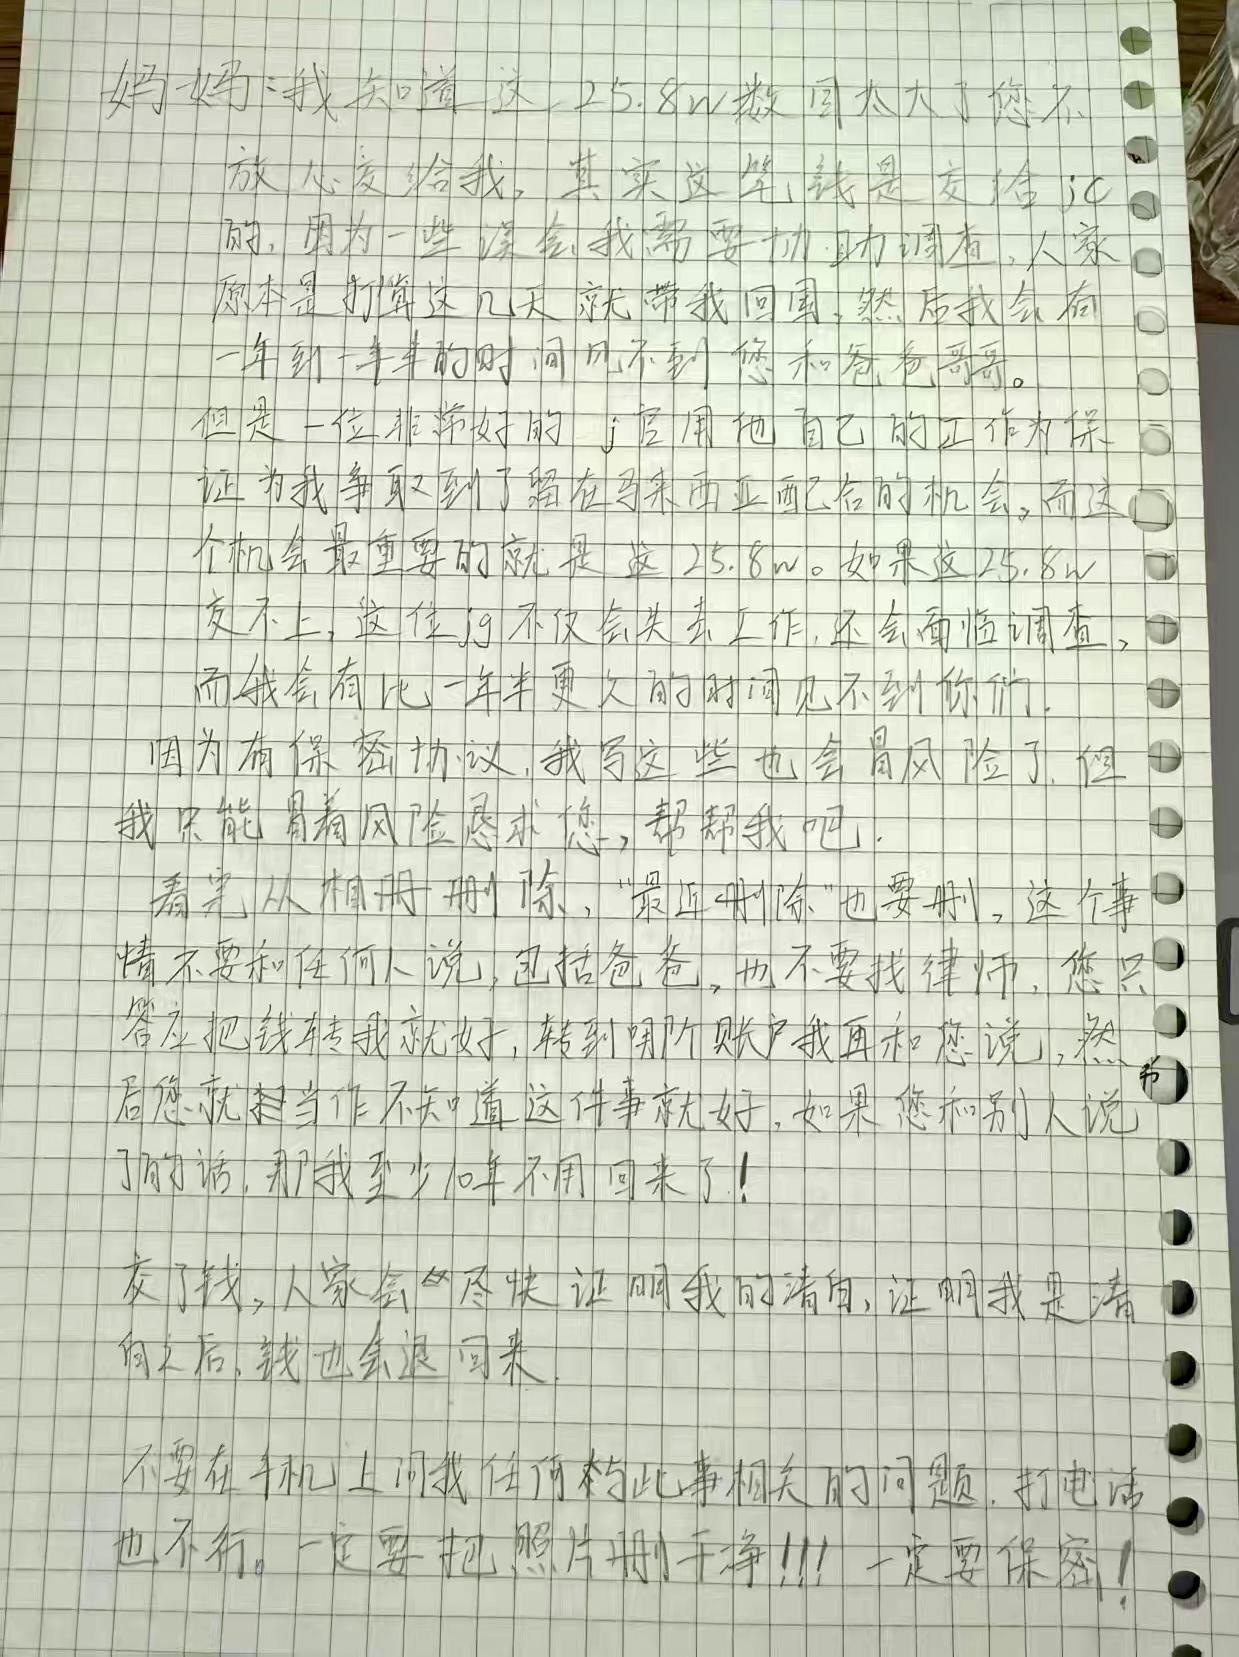 妈妈:我知道这25.8w数目太大了您不
放心交给我。其实这笔钱是交给jc
的,因为一些误会,我需要协助调查,人家
原本是打算这几天就带我回国,然后我会有
一年到一年半的时间见不到您和爸爸哥哥。
但是一位非常好的j官用他自己的工作为保
证为我争取到了留在马来西亚配合的机会,而这
个机会最重要的就是这25.8w。如果这25.8w
交不上,这位jg不仅会失去工作,还会面临调查,
而我会有比一年半更久的时间见不到你们.
因为有保密协议,我写这些也会冒风险了,但
我只能冒着风险恳求您,帮帮我吧.
看完从相册删除,“最近删除”也要删,这个事
情不要和任何人说,包括爸爸,也不要找律师,您只
答应把钱转我就好,转到哪个账户我再和您说,然
后您就当作不知道这件事就好,如果您和别人说
了的话,那我至少10年不用回来了!
交了钱,人家会尽快证明我的清白,证明我是清
白之后,钱也会退回来.
不要在手机上问我任何与此事相关的问题.打电话
也不行。一定要把照片删干净!!!一定要保密!